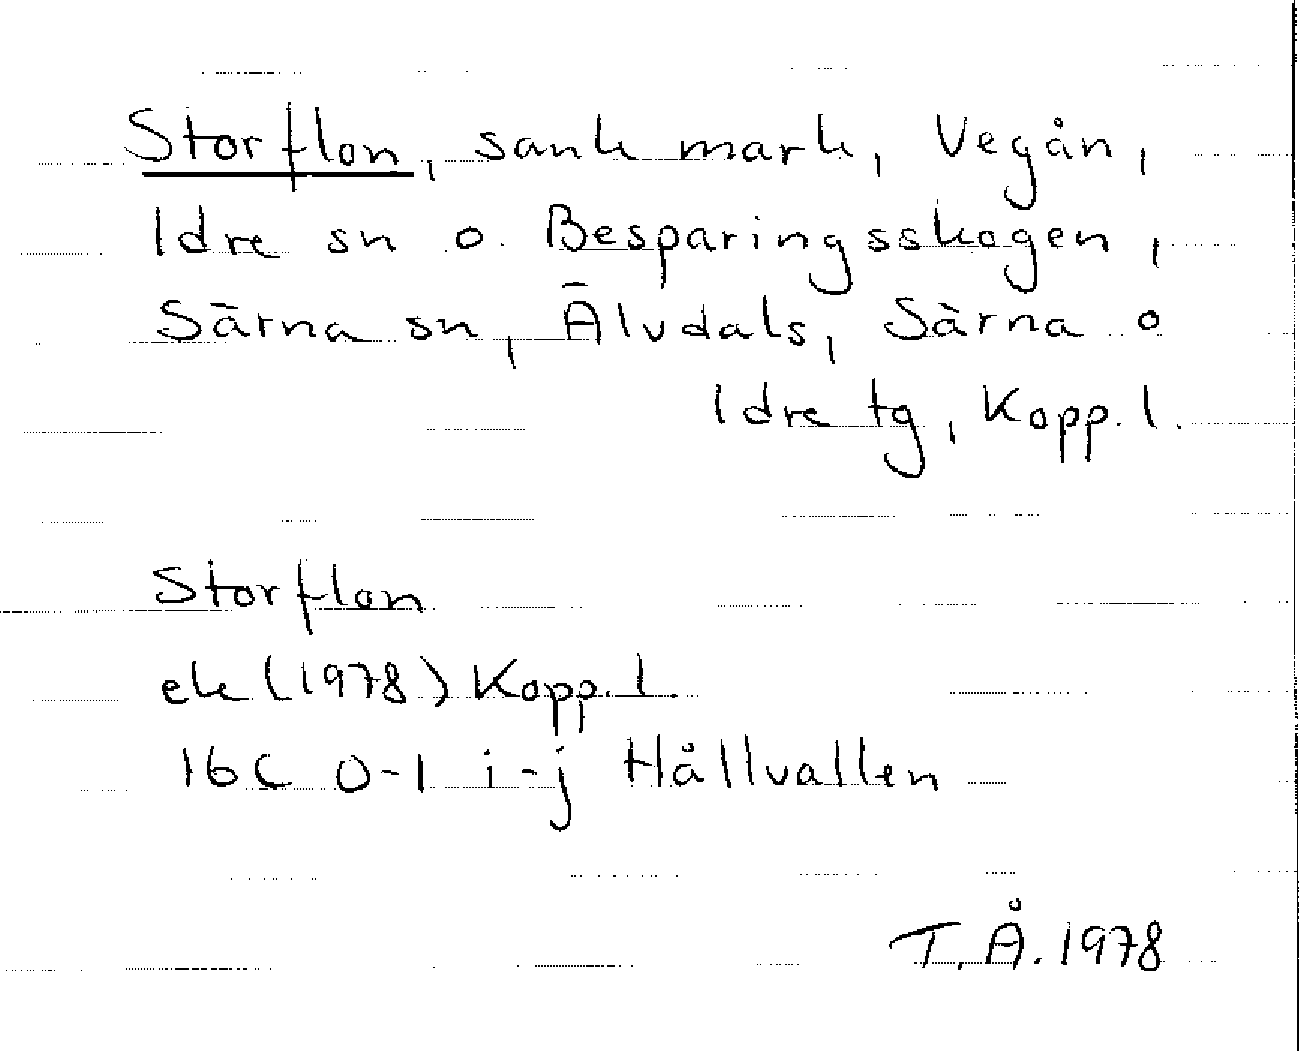 Storflon, sank mark, Vegån,
Idre sn o. Besparingsskogen,
Särna sn, Älvdals, Särna o
Idre tg, Kopp. l.
Storflon
ek (1978) Kopp. l
16C 0-1 i-j Hållvallen
T. Å. 1978